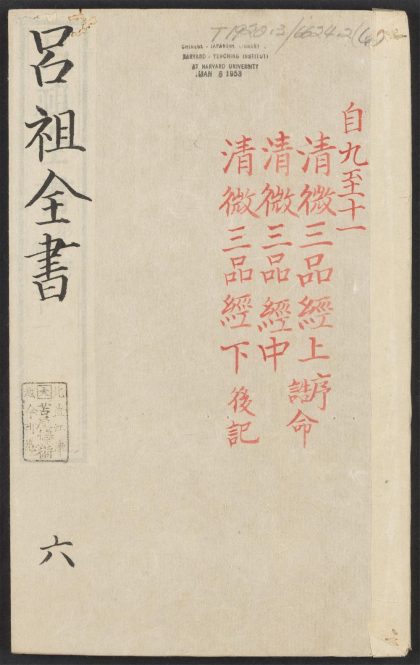 T 1930.2/6624.2 (6)
CHINESE - JAPANESE LIBRARY
HARVARD - YENCHING INSTITUTE
AT HARVARD UNIVERSITY
JAN 8 1953
自九至十一
清微三品經上 序 誥命
清微三品經中
清微三品經下 後記
呂祖全書
六